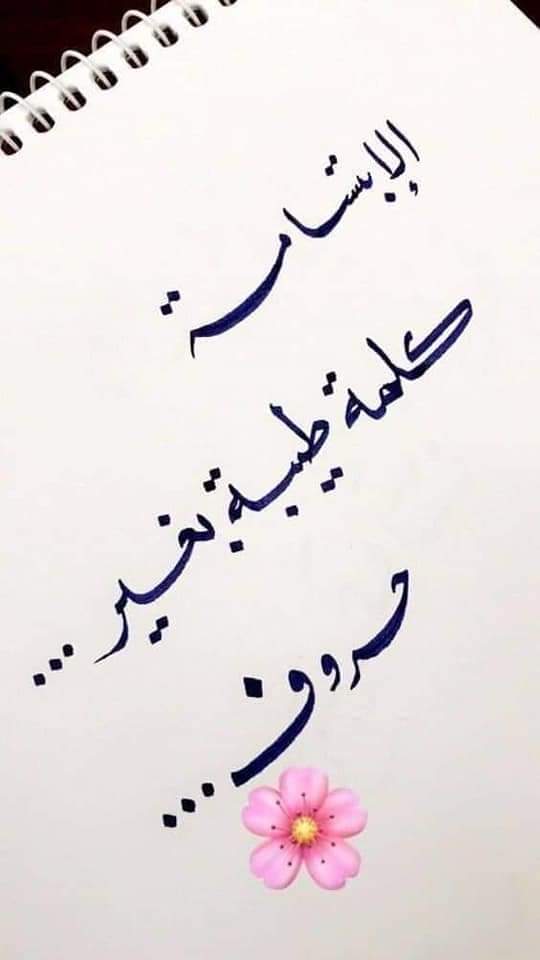 الإبتسامة
كلمة طيبة بغير...
حروف...